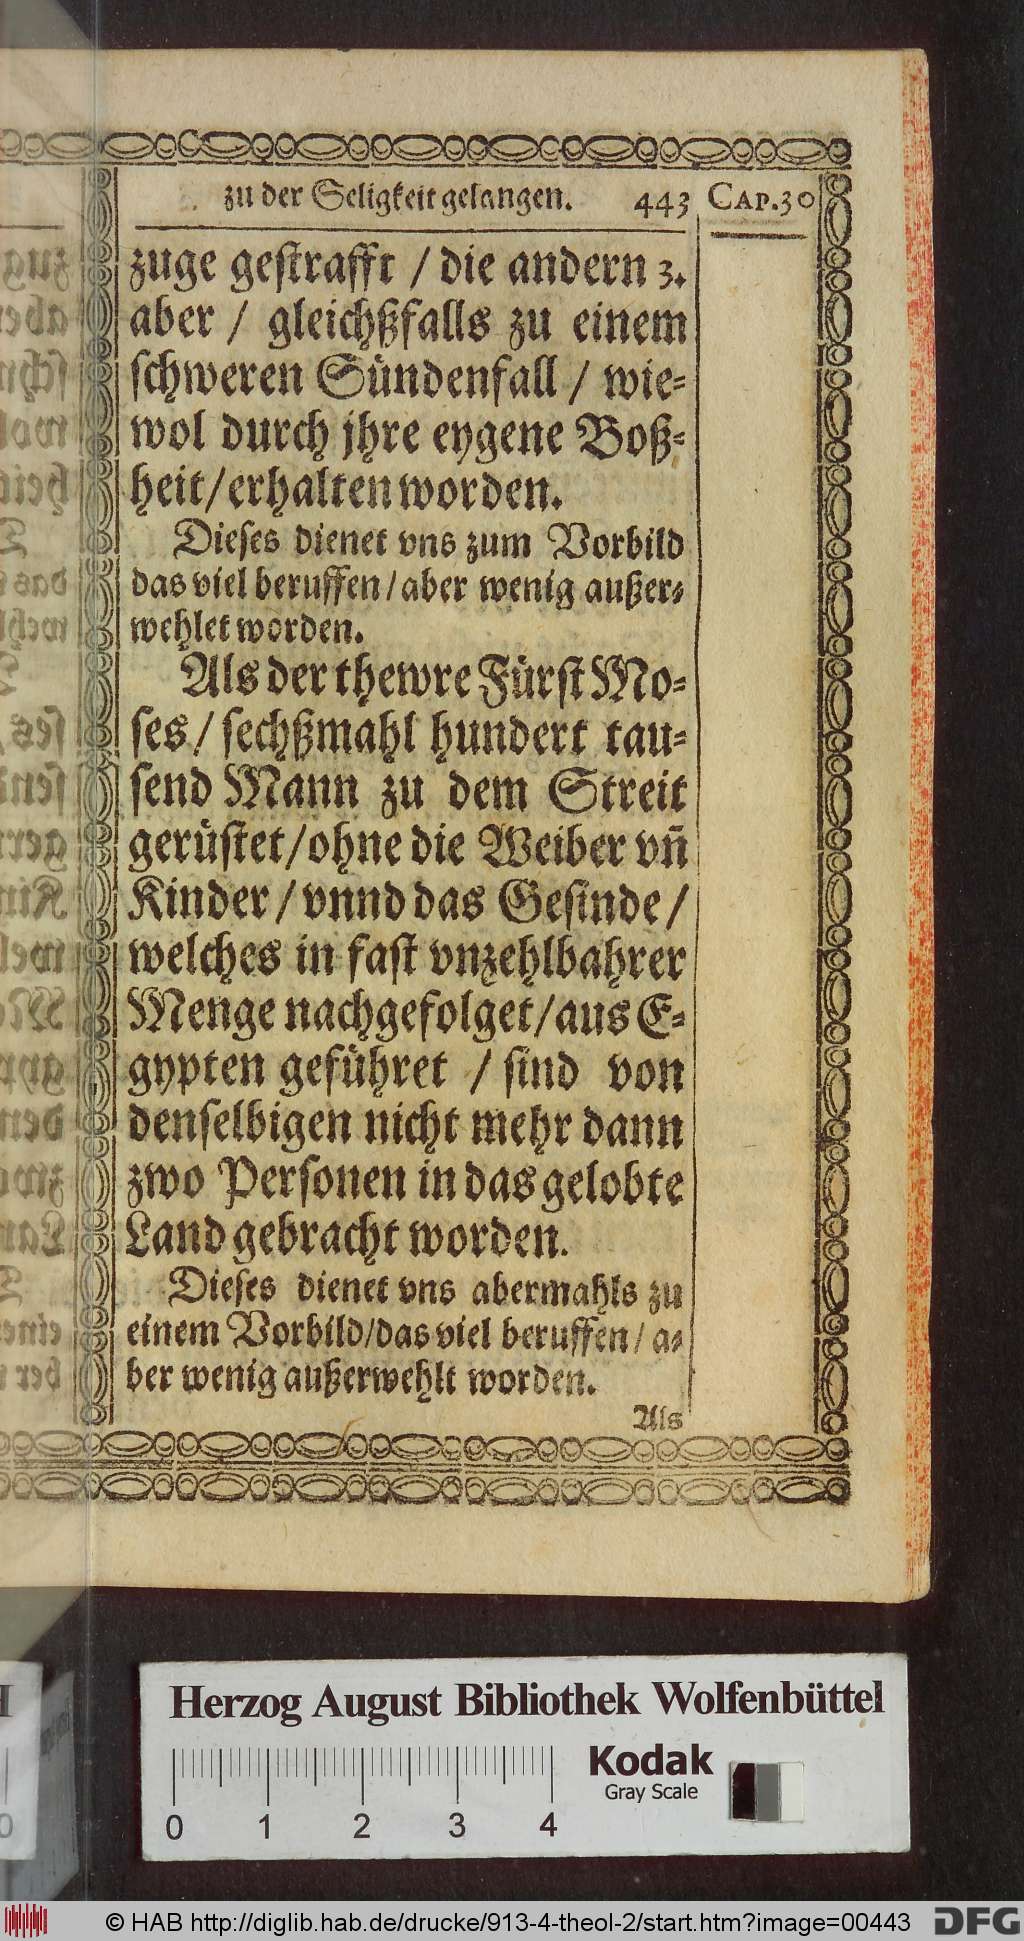 zu der Seligkeit gelangen. 443 CAP.30
zuge gestrafft / die andern 3.
aber / gleichßfalls zu einem
schweren Sündenfall / wie=
wol durch jhre eygene Boß=
heit/erhalten worden.
Dieses dienet vns zum Vorbild
das viel beruffen/aber wenig außer=
wehlet worden.
Als der thewre Fürst Mo=
ses/ sechßmahl hundert tau=
send Mann zu dem Streit
gerüstet/ohne die Weiber vñ
Kinder/vnnd das Gesinde/
welches in fast vnzehlbahrer
Menge nachgefolget/aus E=
gypten geführet / sind von
denselbigen nicht mehr dann
zwo Personen in das gelobte
Land gebracht worden.
Dieses dienet vns abermahls zu
einem Vorbild/das viel beruffen/a=
ber wenig außerwehlt worden.
Als
Herzog August Bibliothek Wolfenbüttel
Kodak
Gray Scale
0 1 2 3 4
© HAB http://diglib.hab.de/drucke/913-4-theol-2/start.htm?image=00443
DFG